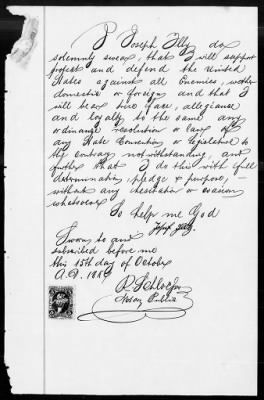 I Joseph Filly do
solemnly swear, that I will support
protect and defend the United
States against all Enemies, wether
domestic or foreign and that I
will bear true face, allegiance
and loyalty to the same any
ordinance resolution or law of
any State Convention or legislatur to
the contrary notwithstanding, and
further that I do this with full
determination, pledge & purpose,
without any hesitation or evasion
whatsoever
So help me God
Sworn to and
subscribed before me
this 15th day of October
A.D. 186
Notary Public